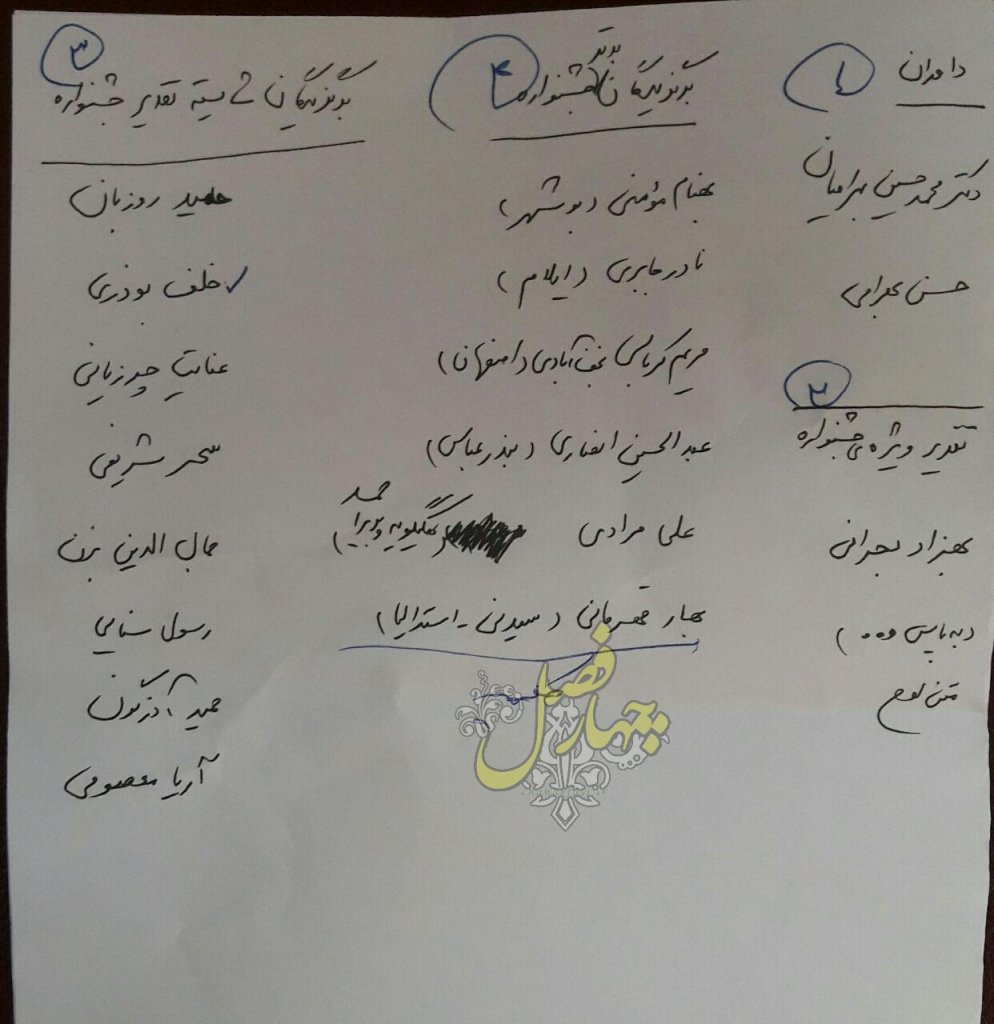 داوران
۱
دکتر محمد حسین بهرامیان
حسن بهرامی
۲
تقدیر ویژه‌ی جشنواره
بهزاد بحرانی
(به پاس ...)
متن لوح
برگزیدگان برتر جشنواره
۴
بهنام مؤمنی (بوشهر)
نادر جابری (ایلام)
مریم کرباسی نجف‌آبادی (اصفهان)
عبدالحسین انصاری (بندرعباس)
علی مرادی (کهگیلویه و بویراحمد)
بهار قهرمانی (سیدنی - استرالیا)
۳
برگزیدگان شایسته تقدیر جشنواره
حمید روزبان
خلف بوذری
عنایت چرزبانی
سحر شریفی
جمال الدین بزن
رسول سنایی
حمید آذرگون
آریا معصومی
چهار فصل